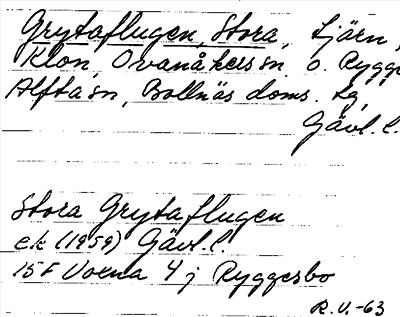 Grytaflugen, Stora, tjärn,
Klon, Ovanåkers sn o. Rygge
Alfta sn, Bollnäs doms. tg,
Gävl. l.
Stora Grytaflugen
ek (1959) Gävl. l.
15F Voxna 4 j Ryggesbo
R.V.-63